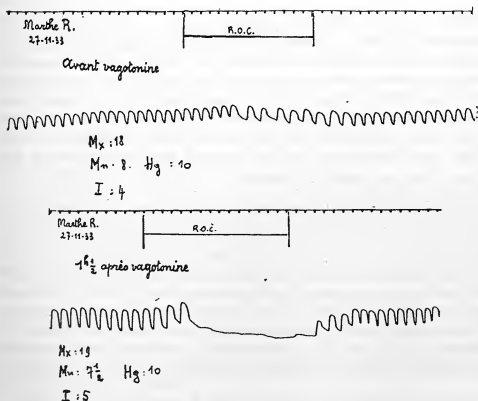 Marthe R.
27-11-33
R.O.C.
Avant vagotonine
Mx : 18
Mn . 8. Hg : 10
I : 4
Marthe R.
27-11-33
R.O.C.
1h 1/2 après vagotonine
Mx : 19
Mn : 7 1/2 Hg : 10
I : 5